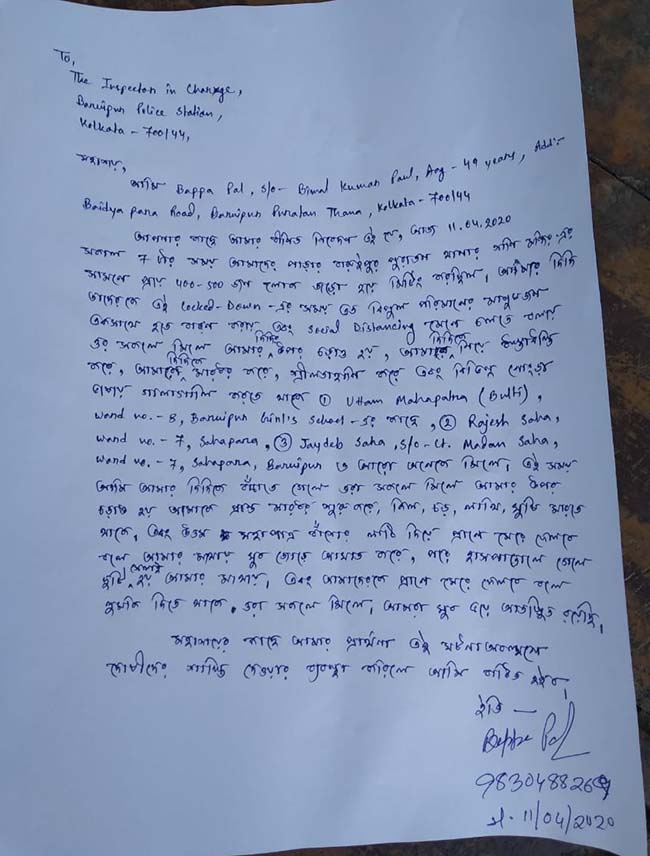 To,
The Inspector in Charge,
Baruipur Police Station,
Kolkata - 700144,
মহাশয়,
আমি Bappa Pal, S/o- Bimal Kumar Paul, Aag - 49 years, Add:-
Baidya para Road, Baruipur Puratan Thana, Kolkata - 700144
আপনার কাছে আমার বিনীত নিবেদন এই যে, আজ 11.04.2020
সকাল 7 টার সময় আমাদের পাড়ার বারুইপুর পুরাতন থানার শনি মন্দির-এর
সামনে প্রায় 400-500 জন লোক জড়ো হয়ে মিটিং করছিল, আমার দিদি
তাদেরকে এই Locked-Down-এর সময় এত বিপুল পরিমানের মানুষজন
একসাথে হতে বারন করায় এবং Social Distancing মেনে চলতে বলায়
ওরা সকলে মিলে আমার দিদির উপর চড়াও হয়, আমার দিদিকে নিয়ে
করে, আমার দিদিকে মারধর করে, শ্লীলতাহানি করে এবং বিভিন্ন নোংরা
ভাষায় গালাগালি করতে থাকে ① Uttam Mahapatra (Bulti),
ward no. - 8, Baruipur Girl's School-এর কাছে, ② Rajesh Saha,
ward no. - 7, Sahapara, ③ Jaydeb Saha, S/o - Lt. Madan Saha,
ward no. - 7, Sahapara, Baruipur ও আরো অনেকে মিলে, এই সময়
আমি আমার দিদিকে বাঁচাতে গেলে ওরা সকলে মিলে আমার উপর
চড়াও হয় আমাকে প্রচন্ড মারধর শুরু করে, কিল, চড়, লাথি, ঘুষি মারতে
থাকে, এবং উত্তম মহাপাত্র বাঁশের লাঠি দিয়ে প্রাণে মেরে ফেলবে
বলে আমার মাথায় খুব জোরে আঘাত করে, পরে হাসপাতালে গেলে
দুটি সেলাই হয় আমার মাথায়, এবং আমাদেরকে প্রাণে মেরে ফেলবে বলে
হুমকি দিতে থাকে, ওরা সকলে মিলে, আমরা খুব ভয়ে আতঙ্কিত রয়েছি,
মহাশয়ের কাছে আমার প্রার্থনা এই ঘটনা অবলম্বনে
দোষীদের শাস্তি দেওয়ার ব্যবস্থা করিলে আমি বাধিত হইব,
ইতি —
Bappa Pal
তা- 11/04/2020